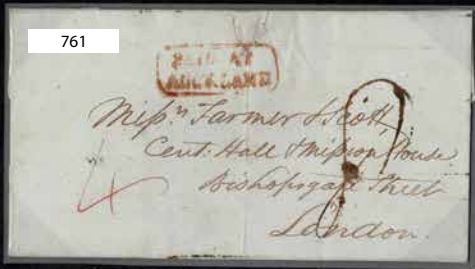 761
PAID AT
AUCKLAND
Mess.rs Farmer & Scott
Cent. Hall & Mission House
Bishopsgate Street
4
London.